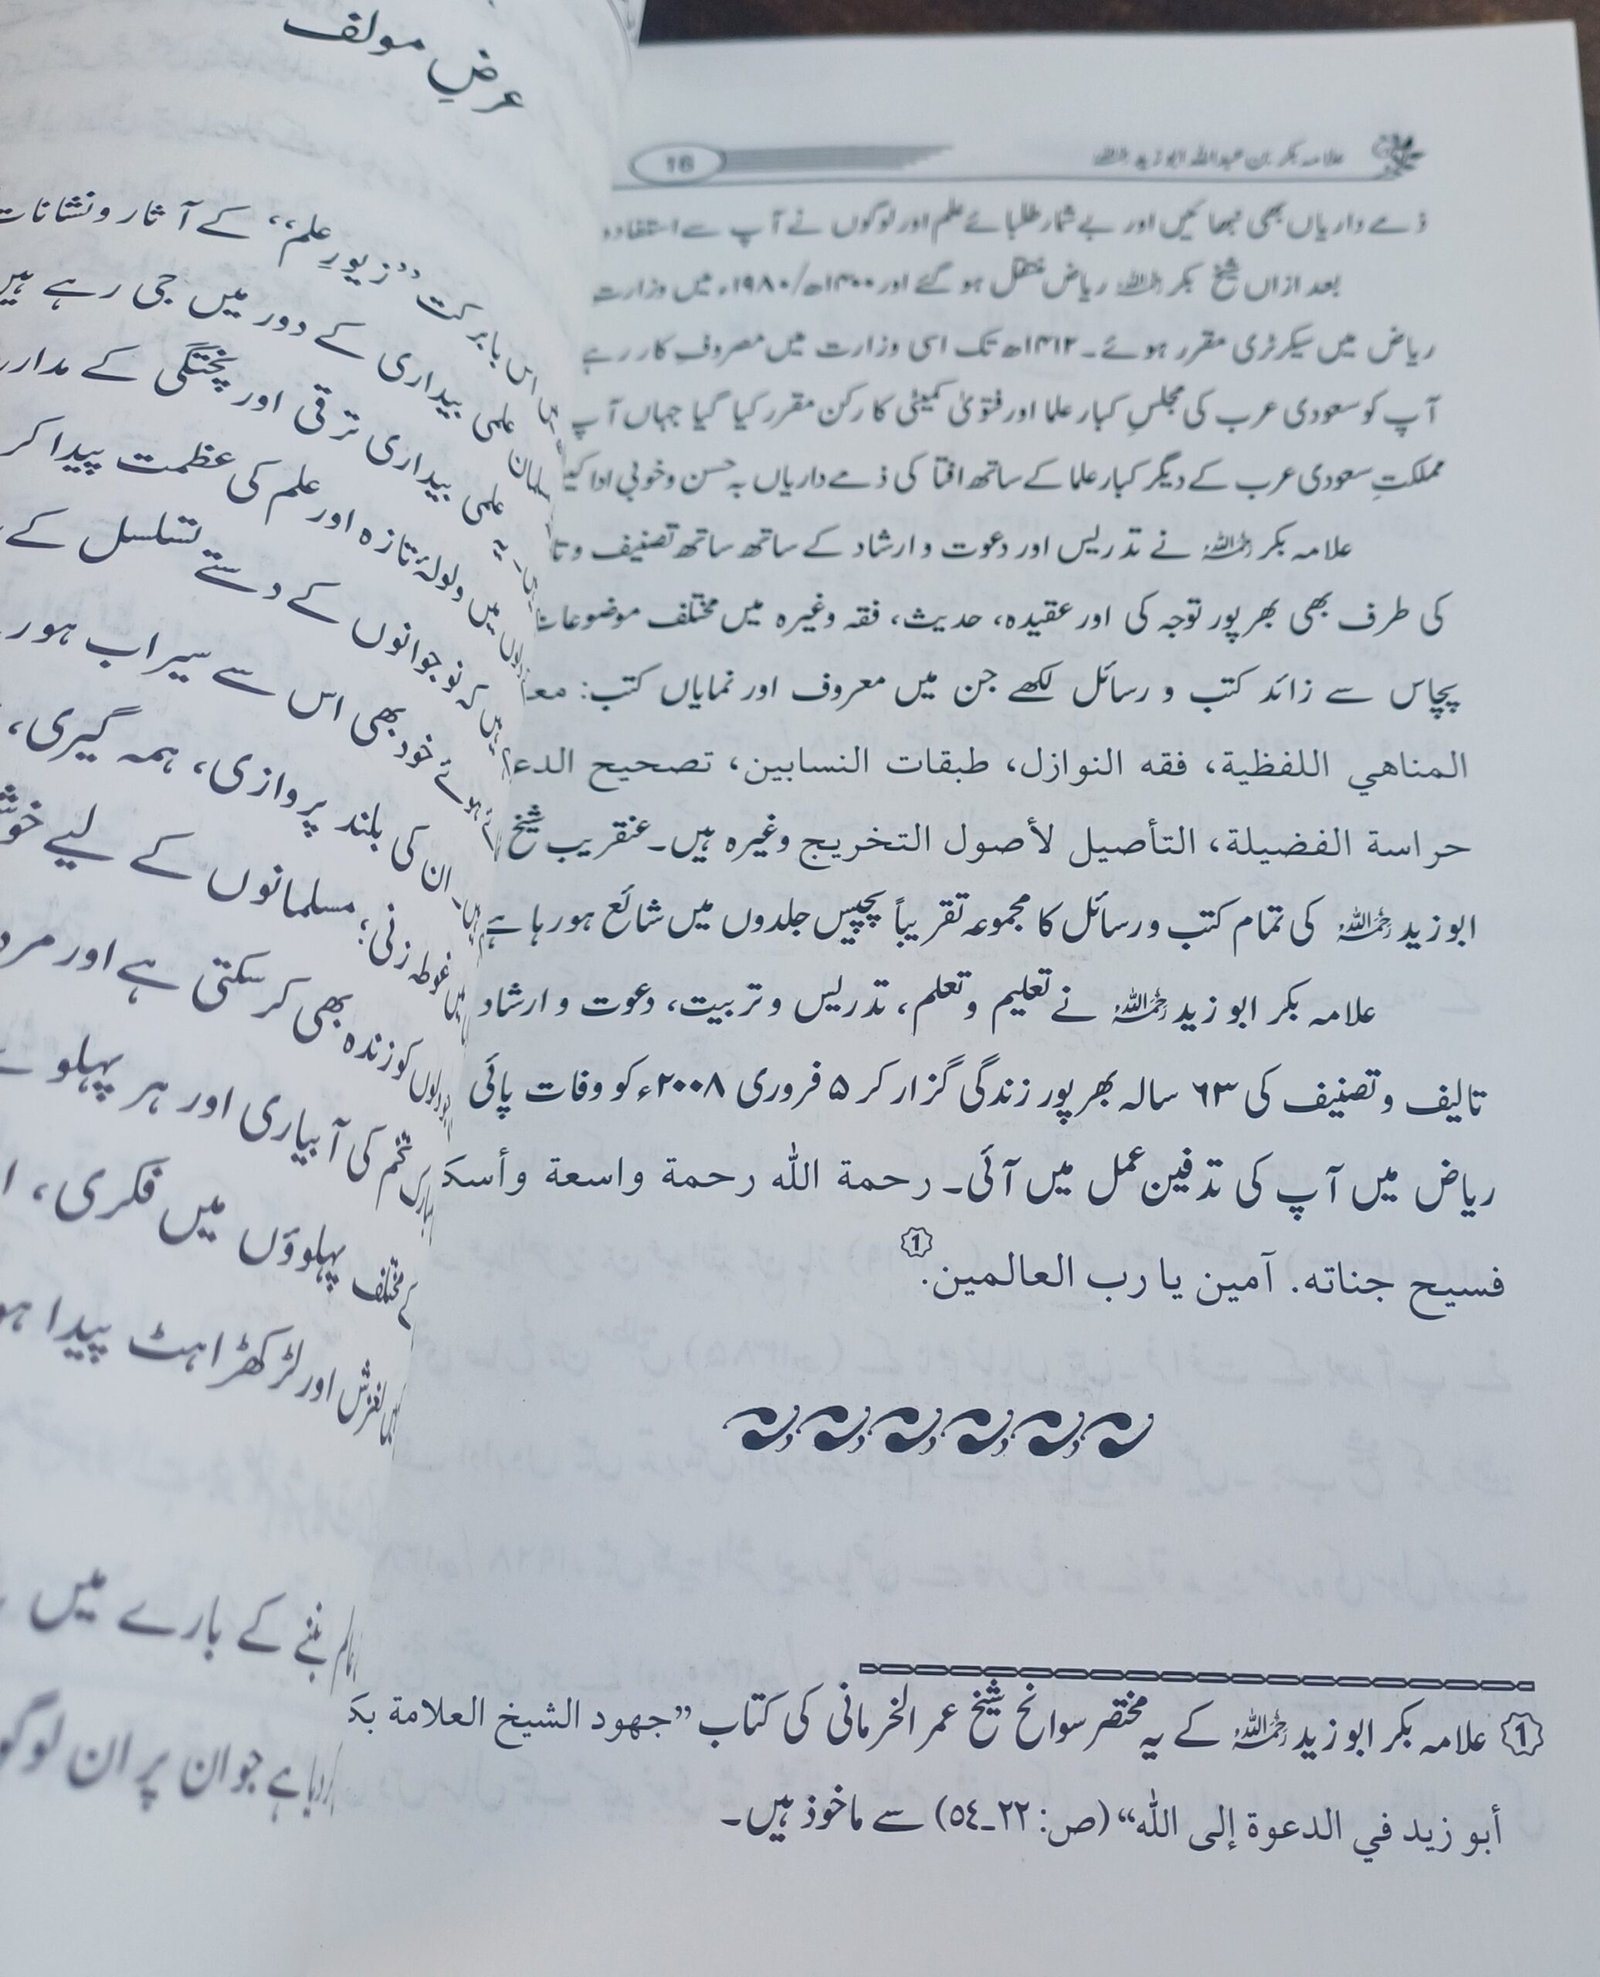 علامہ بکر بن عبداللہ ابو زید رحمہ اللہ
16
ذمے داریاں بھی نبھائیں اور بے شمار طلبائے علم اور لوگوں نے آپ سے استفادہ
بعد ازاں شیخ بکر رحمہ اللہ ریاض منتقل ہو گئے اور ۱۴۰۰ھ/۱۹۸۰ء میں وزارت
ریاض میں سیکرٹری مقرر ہوئے۔ ۱۴۱۲ھ تک اسی وزارت میں مصروفِ کار رہے
آپ کو سعودی عرب کی مجلسِ کبار علما اور فتویٰ کمیٹی کا رکن مقرر کیا گیا جہاں آپ
مملکتِ سعودی عرب کے دیگر کبار علما کے ساتھ افتا کی ذمے داریاں بہ حسن وخوبی ادا
علامہ بکر رحمہ اللہ نے تدریس اور دعوت و ارشاد کے ساتھ ساتھ تصنیف و
کی طرف بھی بھرپور توجہ کی اور عقیدہ، حدیث، فقہ وغیرہ میں مختلف موضوعات
پچاس سے زائد کتب و رسائل لکھے جن میں معروف اور نمایاں کتب:
المناهي اللفظية، فقه النوازل، طبقات النسابين، تصحيح
حراسة الفضيلة، التأصيل لأصول التخريج وغیرہ ہیں۔ عنقریب شیخ
ابو زید رحمہ اللہ کی تمام کتب و رسائل کا مجموعہ تقریباً پچیس جلدوں میں شائع ہو رہا ہے
علامہ بکر ابو زید رحمہ اللہ نے تعلیم و تعلم، تدریس و تربیت، دعوت و ارشاد
تالیف و تصنیف کی ۶۳ سالہ بھرپور زندگی گزار کر ۵ فروری ۲۰۰۸ء کو وفات پائی
ریاض میں آپ کی تدفین عمل میں آئی۔ رحمة الله رحمة واسعة
فسيح جناته. آمين يا رب العالمين.①
① علامہ بکر ابو زید رحمہ اللہ کے یہ مختصر سوانح شیخ عمر الخرمانی کی کتاب ”جهود الشيخ العلامة
أبو زيد في الدعوة إلى الله“ (ص: ٢٢-٥٤) سے ماخوذ ہیں۔
عرضِ مولف
اس بابرکت ”زیورِ علم“ کے آثار و نشانات
علمی بیداری کے دور میں جی رہے ہیں
یہ علمی بیداری ترقی اور پختگی کے
میں ولولۂ تازہ اور علم کی عظمت پیدا کر
ہیں کہ نوجوانوں کے دستے تسلسل کے
ہوئے خود بھی اس سے سیراب ہو
ان کی بلند پروازی، ہمہ گیری،
غوطہ زنی؛ مسلمانوں کے لیے
کو زندہ بھی کر سکتی ہے اور
تخم کی آبیاری اور ہر پہلو
مختلف پہلوؤں میں فکری،
لغزش اور لڑکھڑاہٹ پیدا
بننے کے بارے میں
ہے جو ان پر ان